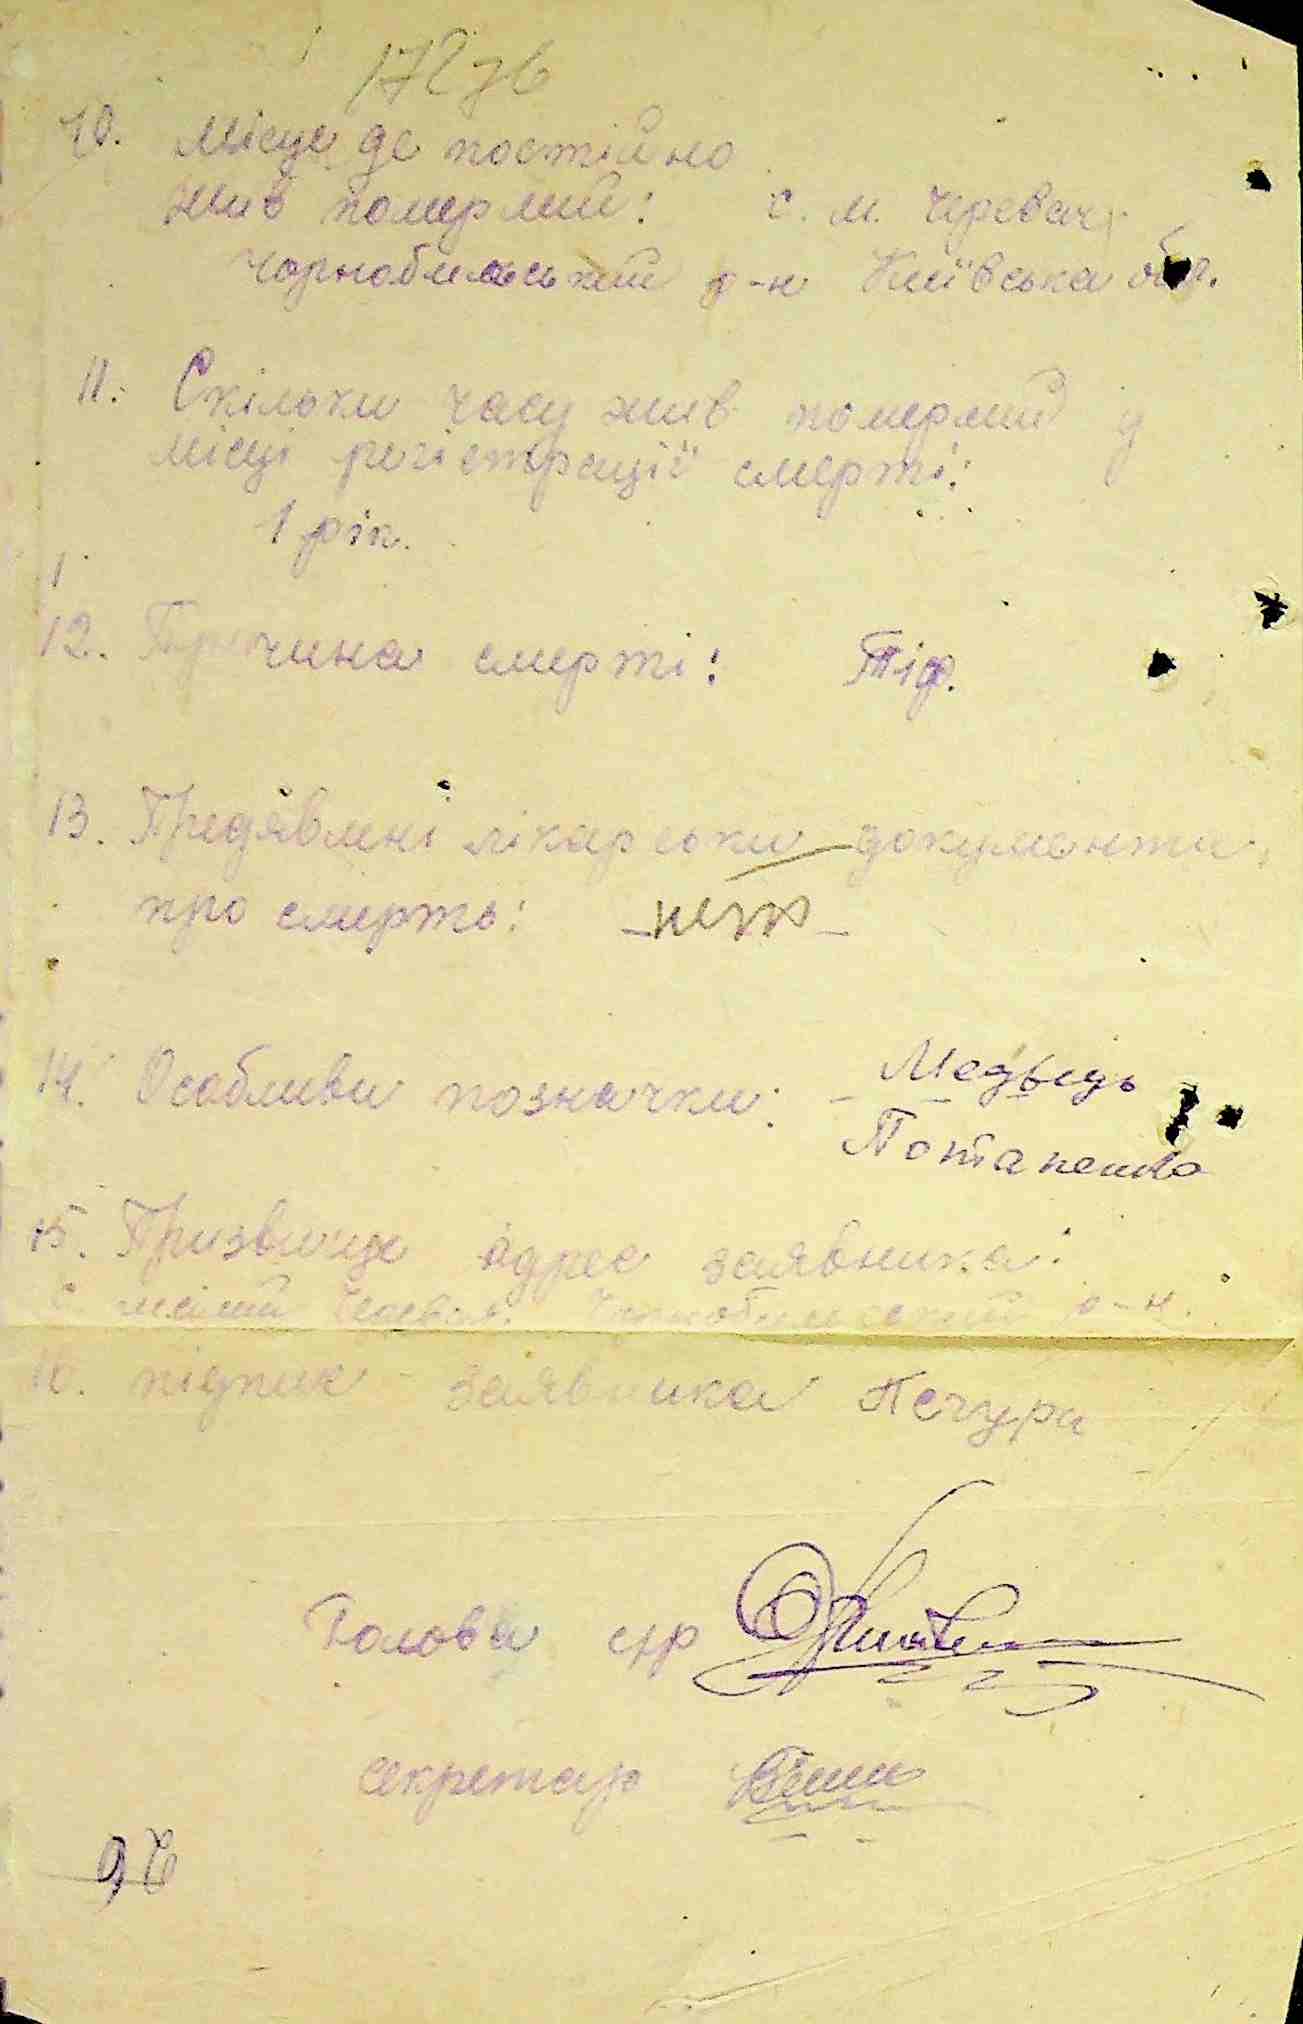 172 зв
10. Місце де постійно
жив померлий: с. м. Черевач
Чорнобильський р-н Київська обл.
11. Скільки часу жив померлий у
місці регістрації смерті:
1 рік.
12. Причина смерті: Тіф.
13. Предявлені лікарськи документи
про смерть: - нет -
14. Особливи позначки: Медьведь
Потапенко
15. Призвище адрес заявника:
с. малий Черевач Чорнобильський р-н.
16. підпис заявника Печура
Голова с/р
секретар